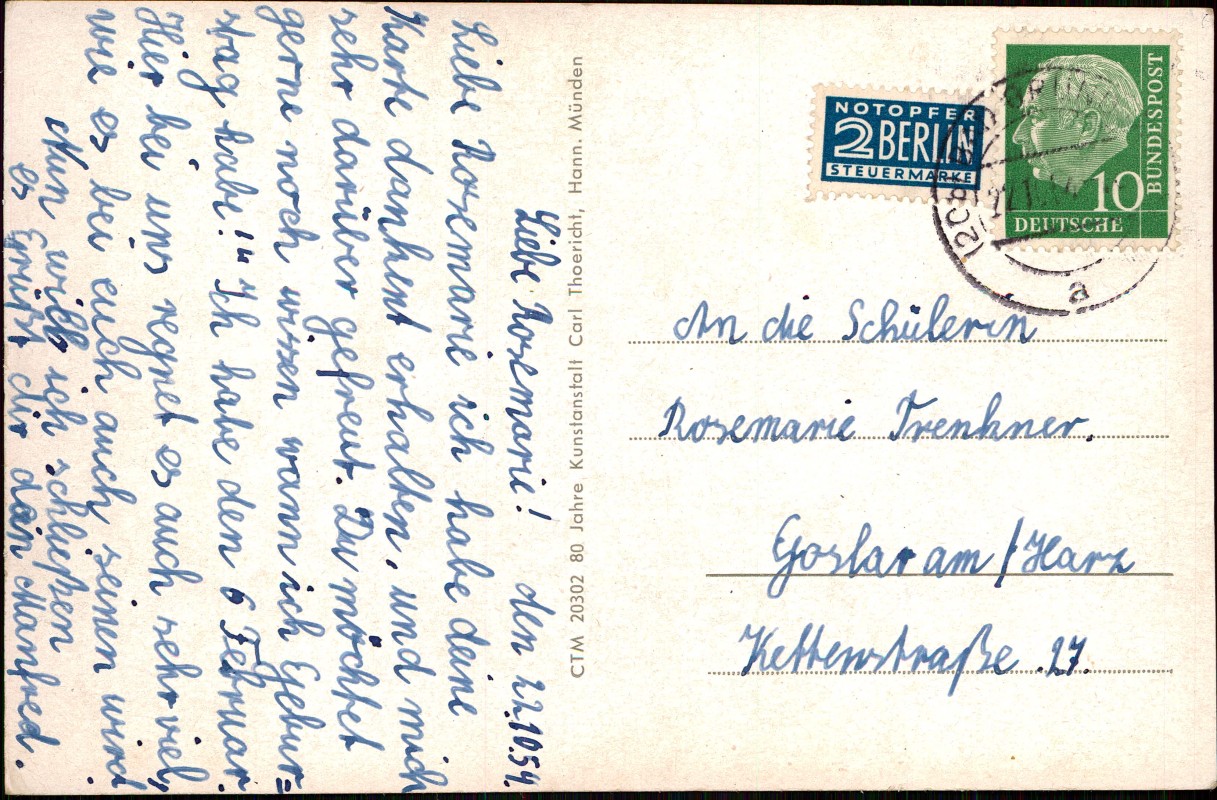 Liebe Rosemarie! den 22.10.54.
Liebe Rosemarie ich habe deine
Karte dankent erhalten, und mich
sehr darüber gefreut. Du möchtet
gerne noch wissen wann ich Gebur=
stag habe!" Ich habe den 6 Februar.
Hier bei uns regnet es auch sehr viel,
wie es bei euch auch seinen wird.
Nun will ich schließen
es Grüßt dir dein Manfred.
CTM 20302 80 Jahre Kunstanstalt Carl Thoericht, Hann. Münden
NOTOPFER
2 BERLIN
STEUERMARKE
10
DEUTSCHE
BUNDESPOST
a
An die Schülerin
Rosemarie Trenkner.
Goslar am /Harz
Kettenstraße .27.